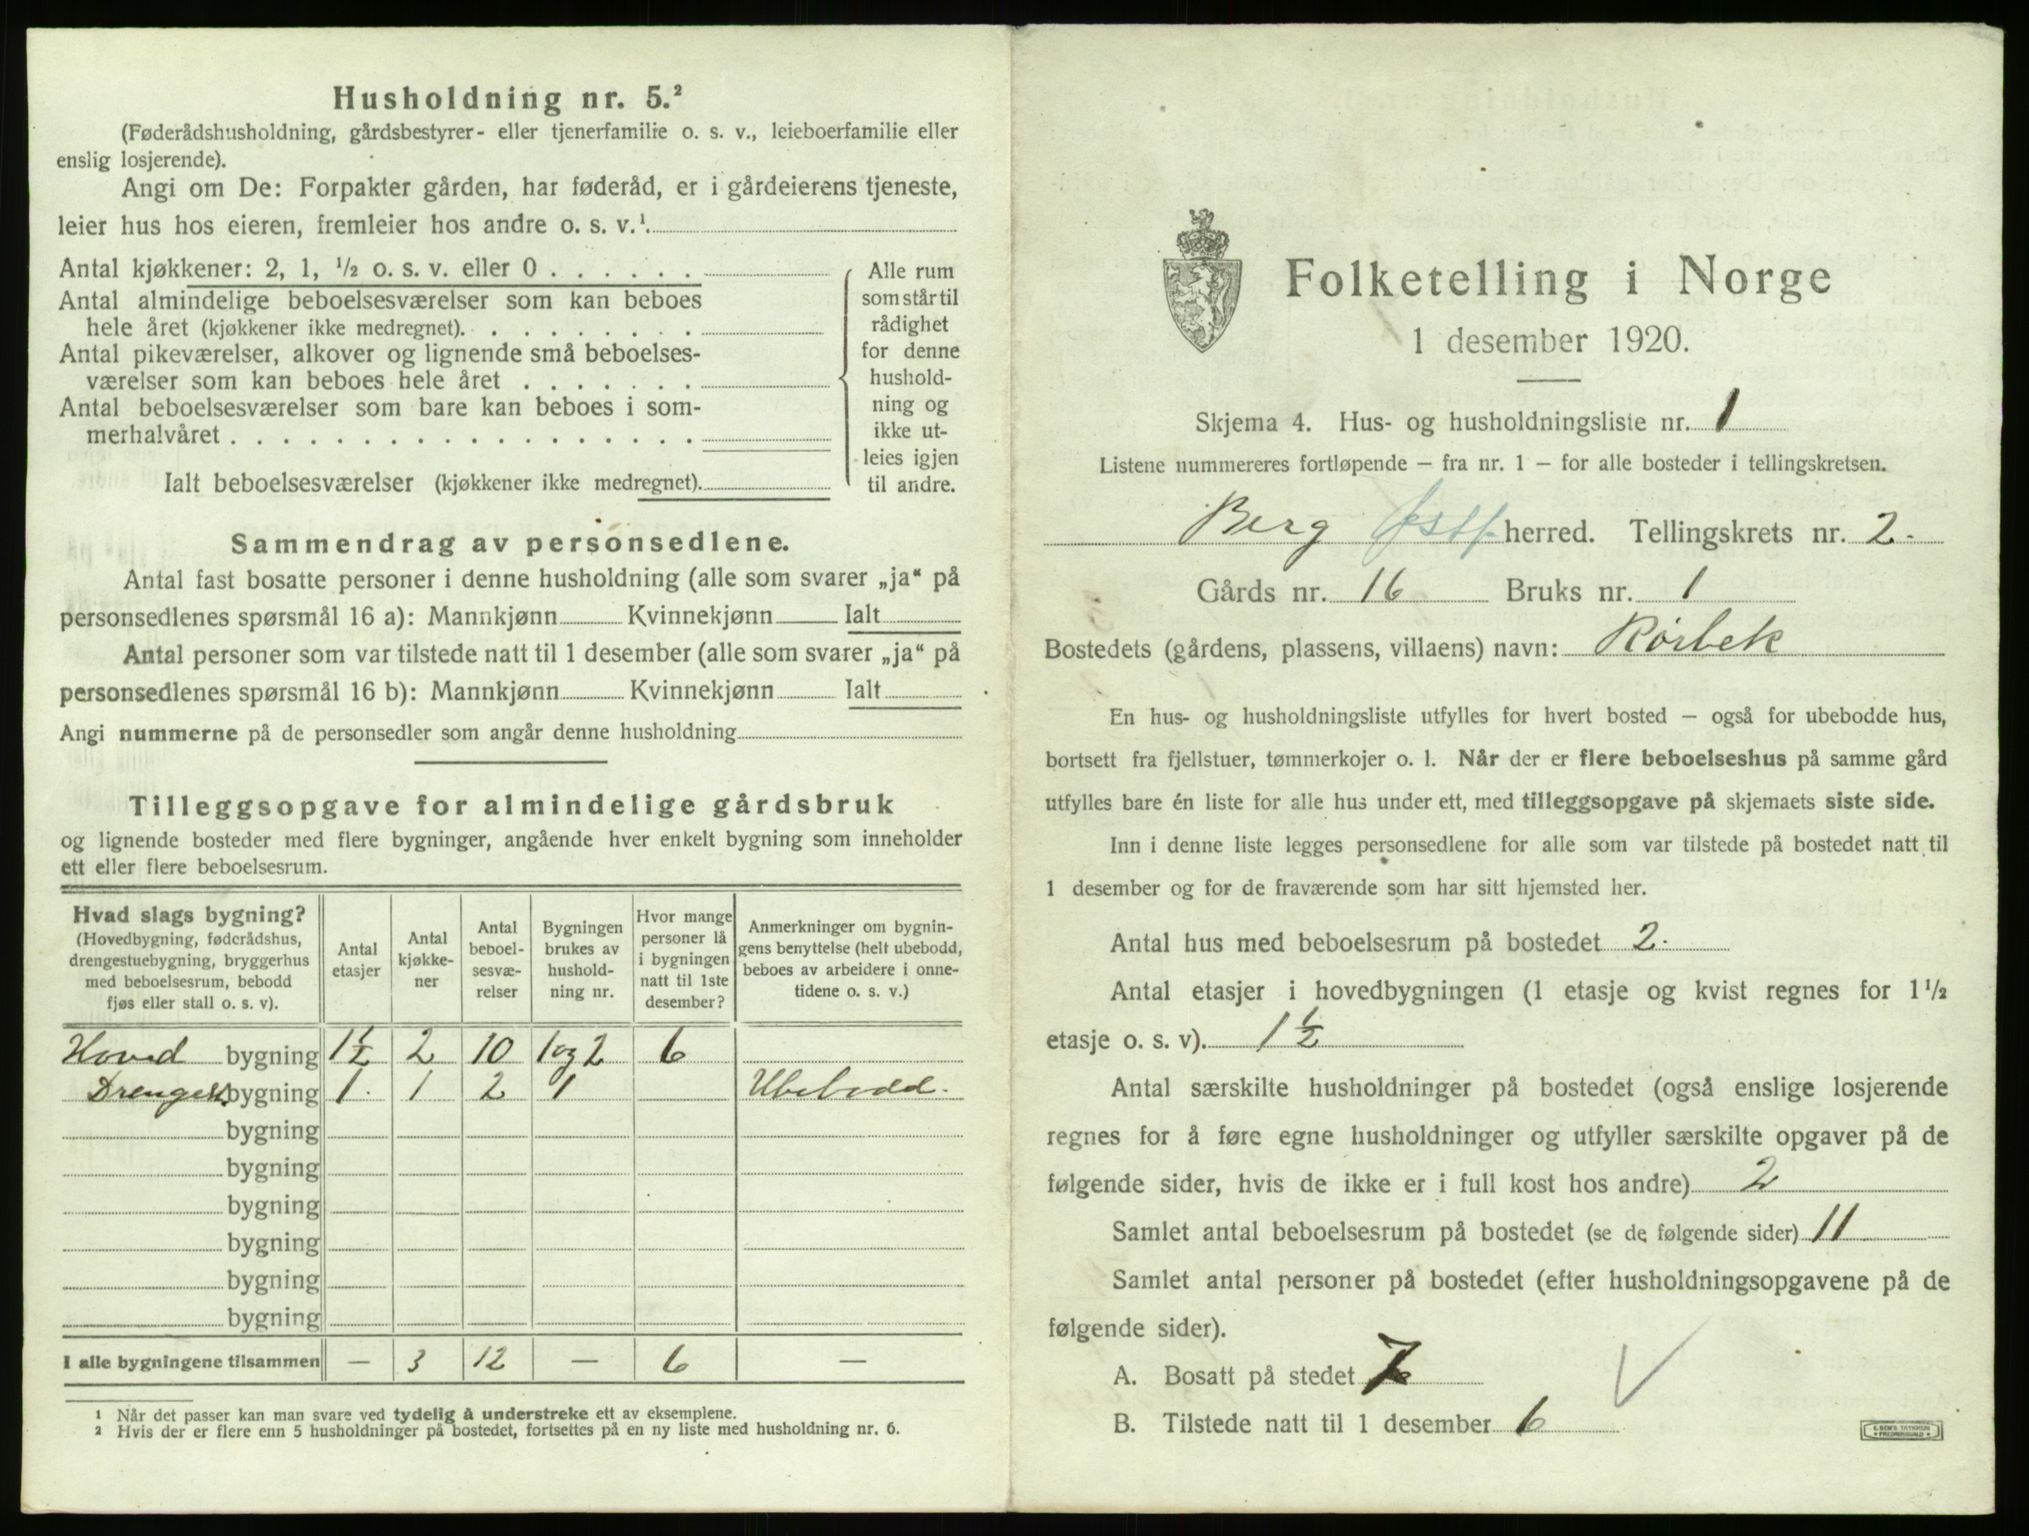 Husholdning nr. 5.²
(Føderådshusholdning, gårdsbestyrer- eller tjenerfamilie o. s. v., leieboerfamilie eller
enslig losjerende).
Angi om De: Forpakter gården, har føderåd, er i gårdeierens tjeneste,
leier hus hos eieren, fremleier hos andre o. s. v.¹
Antal kjøkkener: 2, 1, ½ o. s. v. eller 0
Antal almindelige beboelsesværelser som kan beboes
hele året (kjøkkener ikke medregnet).
Antal pikeværelser, alkover og lignende små beboelses-
værelser som kan beboes hele året
Antal beboelsesværelser som bare kan beboes i som-
merhalvåret
Ialt beboelsesværelser (kjøkkener ikke medregnet).
Alle rum
som står til
rådighet
for denne
hushold-
ning og
ikke ut-
leies igjen
til andre.
Sammendrag av personsedlene.
Antal fast bosatte personer i denne husholdning (alle som svarer „ja“ på
personsedlenes spørsmål 16 a): Mannkjønn Kvinnekjønn Ialt
Antal personer som var tilstede natt til 1 desember (alle som svarer „ja“ på
personsedlenes spørsmål 16 b): Mannkjønn Kvinnekjønn Ialt
Angi nummerne på de personsedler som angår denne husholdning
Tilleggsopgave for almindelige gårdsbruk
og lignende bosteder med flere bygninger, angående hver enkelt bygning som inneholder
ett eller flere beboelsesrum.
Hvad slags bygning?
(Hovedbygning, føderådshus,
drengestuebygning, bryggerhus
med beboelsesrum, bebodd
fjøs eller stall o. s. v).
Antal
etasjer
Antal
kjøkke-
ner
Antal
beboel-
sesvæ-
relser
Bygningen
brukes av
hushold-
ning nr.
Hvor mange
personer lå
i bygningen
natt til 1ste
desember?
Anmerkninger om bygnin-
gens benyttelse (helt ubebodd,
beboes av arbeidere i onne-
tidene o. s. v.)
Hoved bygning 1½ 2 10 1 og 2 6
Drengest. bygning 1. 1 2 1 Ubebodd.
bygning
bygning
bygning
bygning
bygning
bygning
I alle bygningene tilsammen — 3 12 — 6 —
¹ Når det passer kan man svare ved tydelig å understreke ett av eksemplene.
² Hvis der er flere enn 5 husholdninger på bostedet, fortsettes på en ny liste med husholdning nr. 6.
Folketelling i Norge
1 desember 1920.
Skjema 4. Hus- og husholdningsliste nr. 1
Listene nummereres fortløpende — fra nr. 1 — for alle bosteder i tellingskretsen.
Berg Østf. herred. Tellingskrets nr. 2.
Gårds nr. 16 Bruks nr. 1
Bostedets (gårdens, plassens, villaens) navn: Rørbek
En hus- og husholdningsliste utfylles for hvert bosted — også for ubebodde hus,
bortsett fra fjellstuer, tømmerkojer o. l. Når der er flere beboelseshus på samme gård
utfylles bare én liste for alle hus under ett, med tilleggsopgave på skjemaets siste side.
Inn i denne liste legges personsedlene for alle som var tilstede på bostedet natt til
1 desember og for de fraværende som har sitt hjemsted her.
Antal hus med beboelsesrum på bostedet 2.
Antal etasjer i hovedbygningen (1 etasje og kvist regnes for 1½
etasje o. s. v). 1½
Antal særskilte husholdninger på bostedet (også enslige losjerende
regnes for å føre egne husholdninger og utfyller særskilte opgaver på de
følgende sider, hvis de ikke er i full kost hos andre) 2
Samlet antal beboelsesrum på bostedet (se de følgende sider) 11
Samlet antal personer på bostedet (efter husholdningsopgavene på de
følgende sider).
A. Bosatt på stedet 7
B. Tilstede natt til 1 desember 6